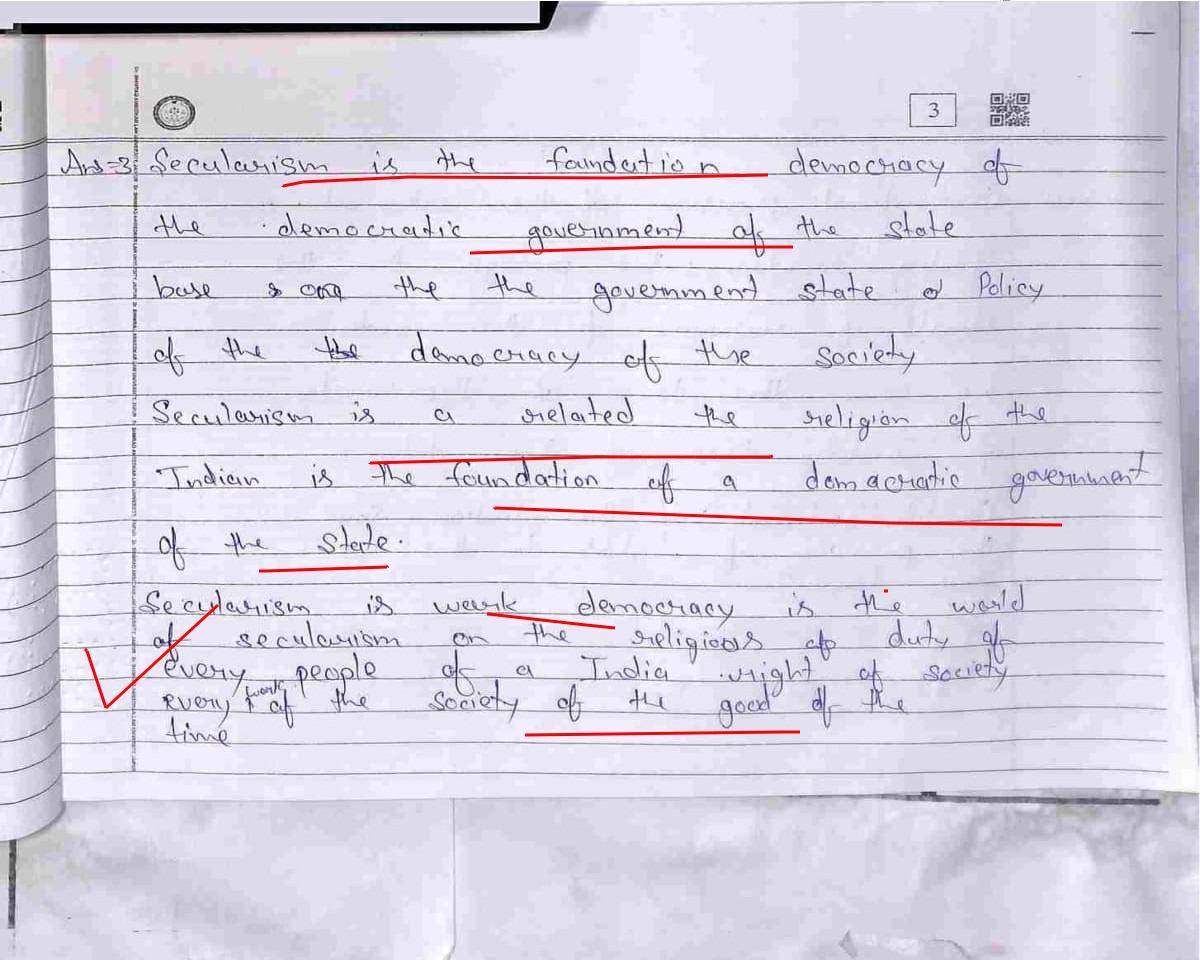 3
Ans=3 Secularism is the foundation democracy of
the democratic government of the state
base on the the government state of Policy
of the the democracy of the society
Secularism is a related the religion of the
Indian is the foundation of a democratic government
of the state.
Secularism is work democracy is the world
of secularism on the religious of duty of
every people of a India right of society
every work of the society of the good of the
time